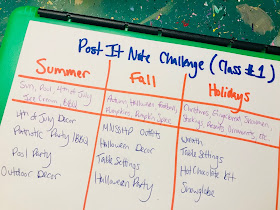 Post It Note Challenge (Class #1)
Summer Fall Holidays
Sun, Pool, 4th of July
Ice Cream, BBQ
Autumn, Halloween, Football,
Pumpkins, Pumpkin Spice
Christmas, Gingerbread, Snowman,
Stockings, Ornaments, etc.
4th of July Decor
Patriotic Party/BBQ
Pool Party
Outdoor Decor
MNSSHP Outfits
Halloween Decor
Table Settings
Halloween Party
Wreath
Table Settings
Hot Chocolate Kit
Snowglobe